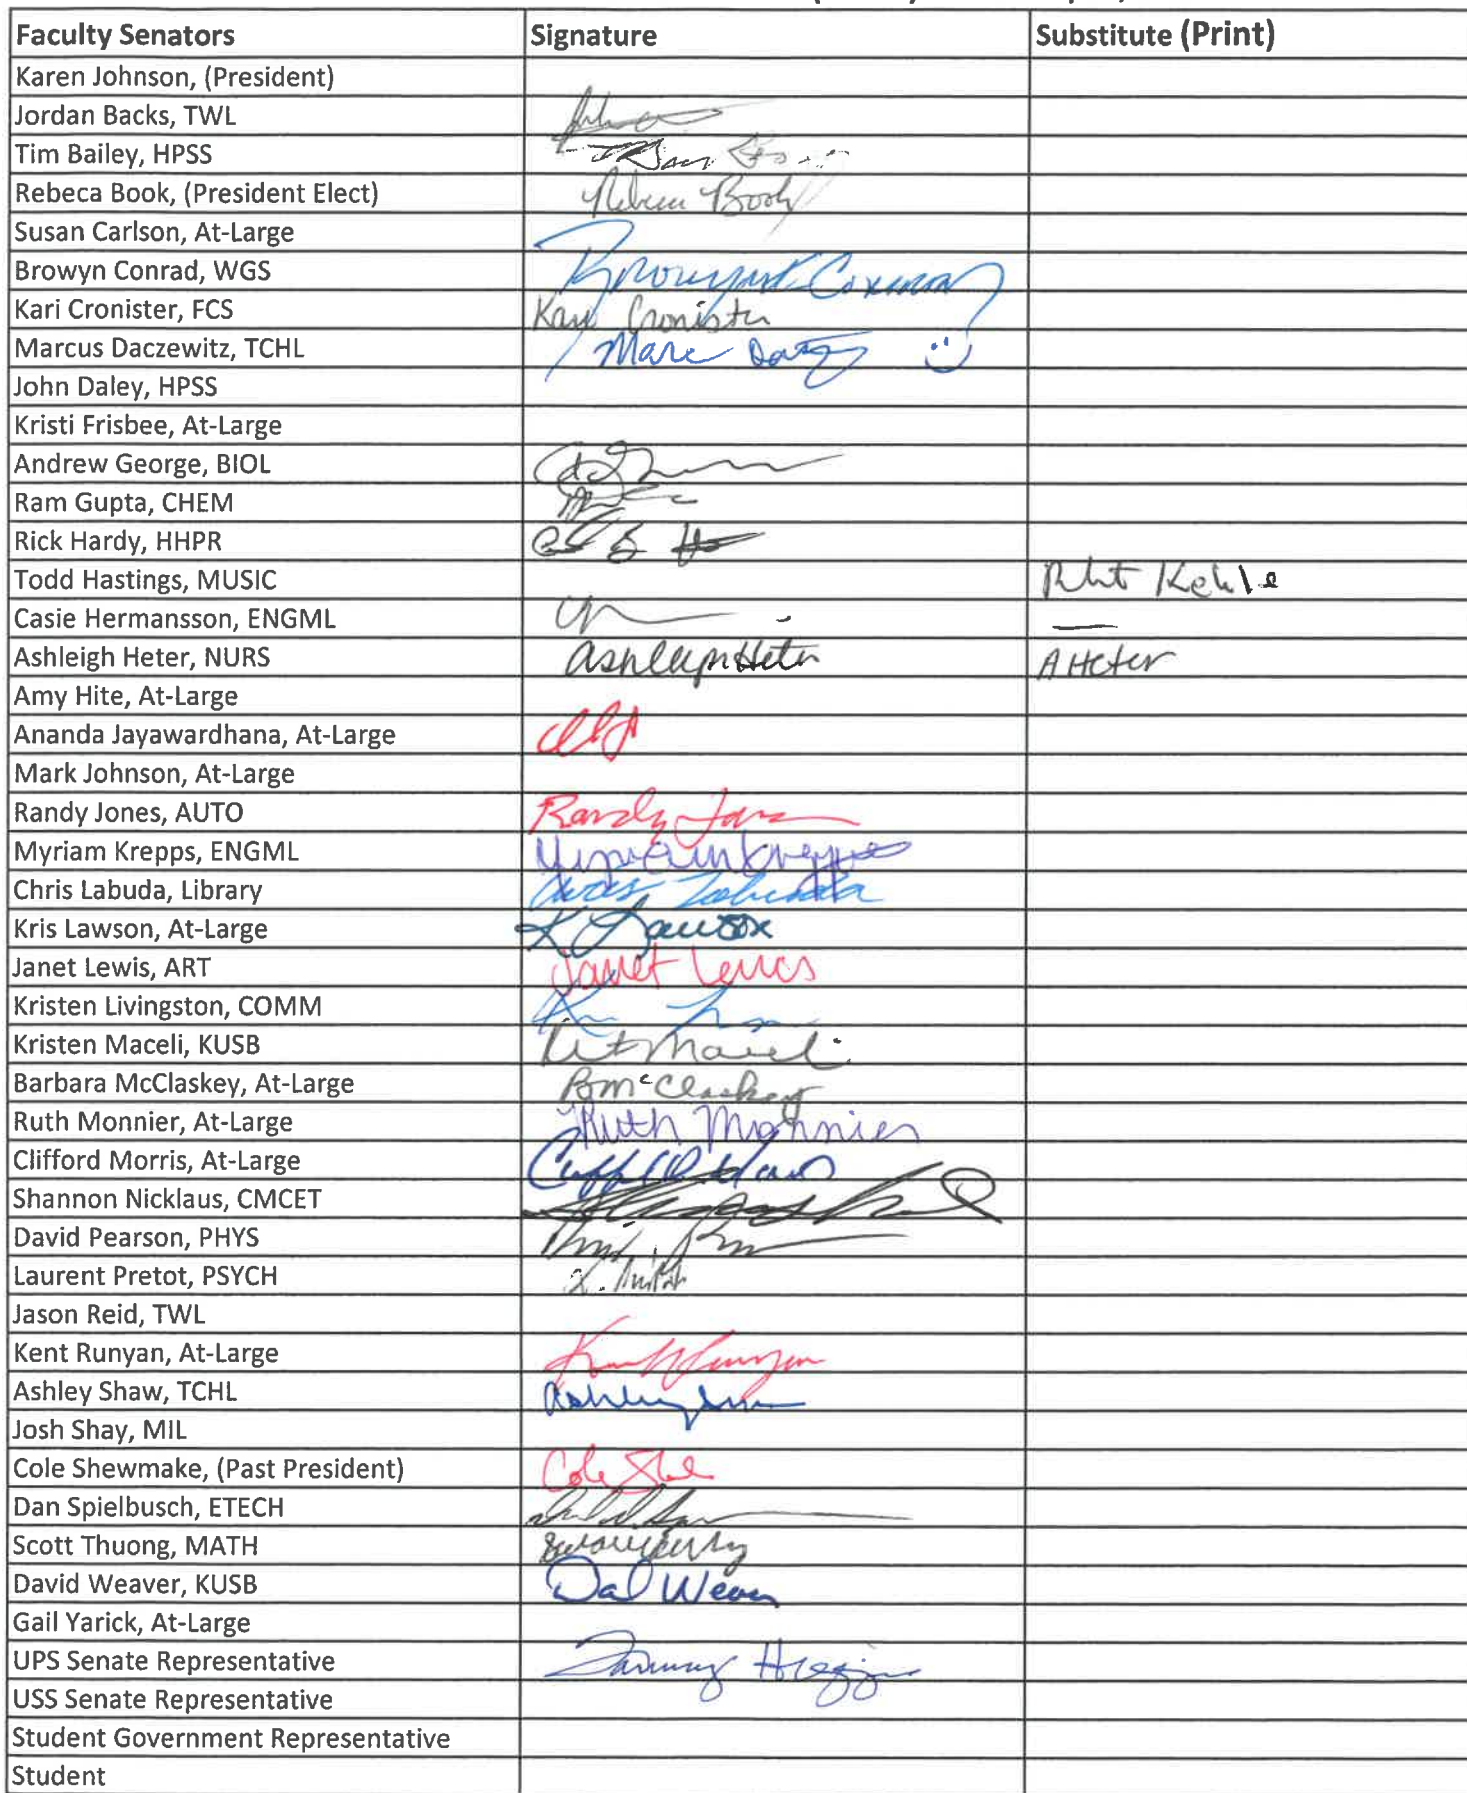 Faculty Senators Signature Substitute (Print)
Karen Johnson, (President)
Jordan Backs, TWL
Tim Bailey, HPSS
Rebeca Book, (President Elect) Rebecca Book
Susan Carlson, At-Large
Browyn Conrad, WGS
Kari Cronister, FCS Kari Cronister
Marcus Daczewitz, TCHL Marc
John Daley, HPSS
Kristi Frisbee, At-Large
Andrew George, BIOL
Ram Gupta, CHEM
Rick Hardy, HHPR
Todd Hastings, MUSIC Kehle
Casie Hermansson, ENGML
Ashleigh Heter, NURS Ashleigh Heter A Heter
Amy Hite, At-Large
Ananda Jayawardhana, At-Large
Mark Johnson, At-Large
Randy Jones, AUTO Randy Jones
Myriam Krepps, ENGML Myriam Krepps
Chris Labuda, Library Chris Labuda
Kris Lawson, At-Large K Lawson
Janet Lewis, ART Janet Lewis
Kristen Livingston, COMM
Kristen Maceli, KUSB
Barbara McClaskey, At-Large B McClaskey
Ruth Monnier, At-Large Ruth Monnier
Clifford Morris, At-Large
Shannon Nicklaus, CMCET
David Pearson, PHYS
Laurent Pretot, PSYCH
Jason Reid, TWL
Kent Runyan, At-Large
Ashley Shaw, TCHL Ashley
Josh Shay, MIL
Cole Shewmake, (Past President) Cole
Dan Spielbusch, ETECH
Scott Thuong, MATH
David Weaver, KUSB Weaver
Gail Yarick, At-Large
UPS Senate Representative Tammy
USS Senate Representative
Student Government Representative
Student